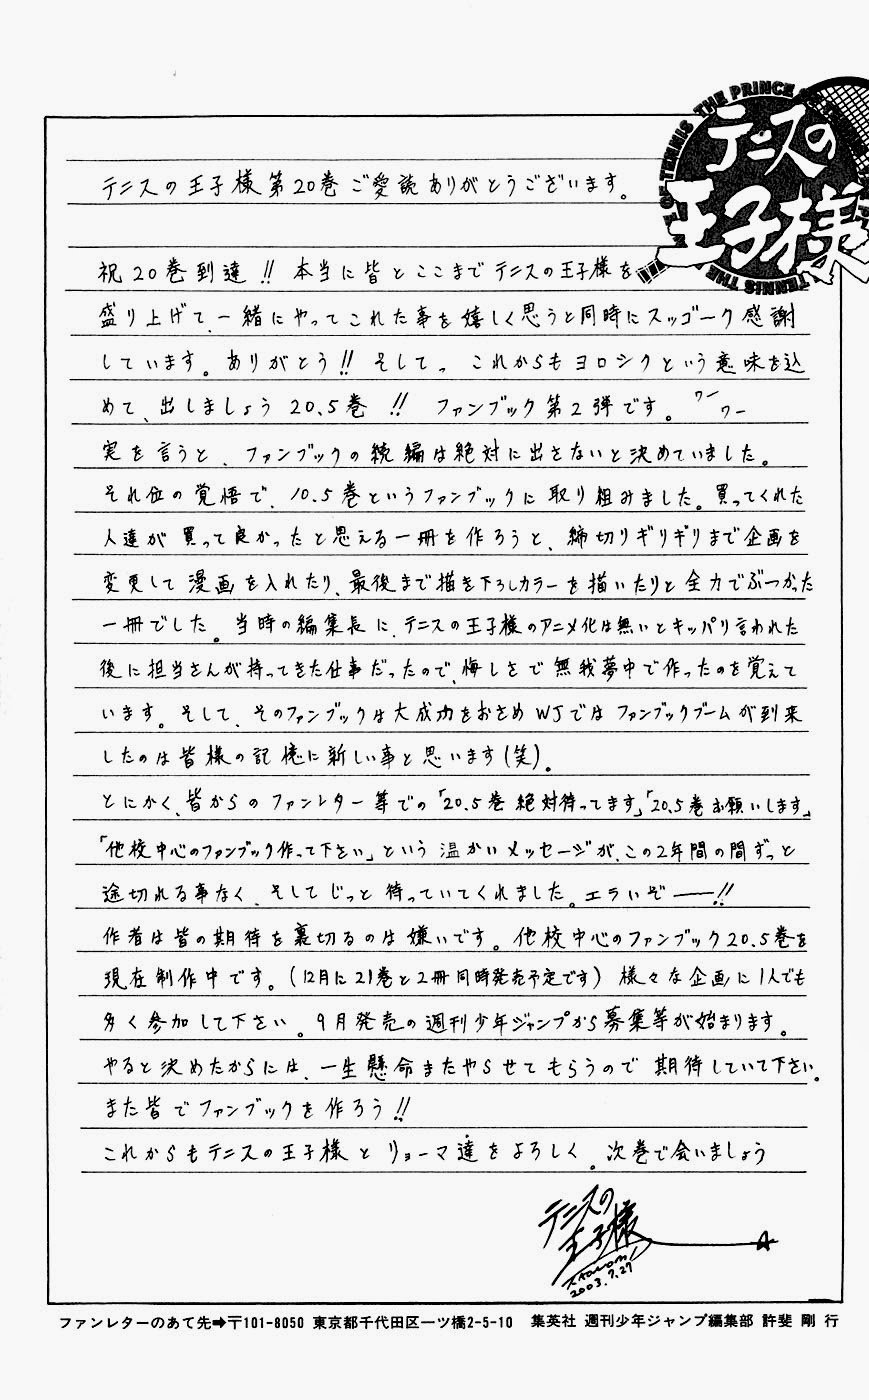 THE PRINCE OF TENNIS
テニスの
王子様
テニスの王子様第20巻ご愛読ありがとうございます。
祝20巻到達!! 本当に皆とここまでテニスの王子様を
盛り上げて、一緒にやってこれた事を嬉しく思うと同時にスッゴーク感謝
しています。ありがとう!! そしてっ これからもヨロシクという意味を込
めて、出しましょう20.5巻!! ファンブック第2弾です。ワーワー
実を言うと、ファンブックの続編は絶対に出さないと決めていました。
それ位の覚悟で、10.5巻というファンブックに取り組みました。買ってくれた
人達が買って良かったと思える一冊を作ろうと、締切りギリギリまで企画を
変更して漫画を入れたり、最後まで描き下ろしカラーを描いたりと全力でぶつかった
一冊でした。当時の編集長に、テニスの王子様のアニメ化は無いとキッパリ言われた
後に担当さんが持ってきた仕事だったので、悔しさで無我夢中で作ったのを覚えて
います。そして、そのファンブックは大成功をおさめWJではファンブックブームが到来
したのは皆様の記憶に新しい事と思います(笑)。
とにかく、皆からのファンレター等での「20.5巻絶対待ってます」「20.5巻お願いします」
「他校中心のファンブック作って下さい」という温かいメッセージが、この2年間の間ずっと
途切れる事なく、そしてじっと待っていてくれました。エラいぞ――!!
作者は皆の期待を裏切るのは嫌いです。他校中心のファンブック20.5巻を
現在制作中です。(12月に21巻と2冊同時発売予定です) 様々な企画に1人でも
多く参加して下さい。9月発売の週刊少年ジャンプから募集等が始まります。
やると決めたからには、一生懸命またやらせてもらうので期待していて下さい。
また皆でファンブックを作ろう!!
これからもテニスの王子様とリョーマ達をよろしく。次巻で会いましょう
テニスの
王子様
2003.7.27
ファンレターのあて先➡〒101-8050 東京都千代田区一ツ橋2-5-10 集英社 週刊少年ジャンプ編集部 許斐 剛 行